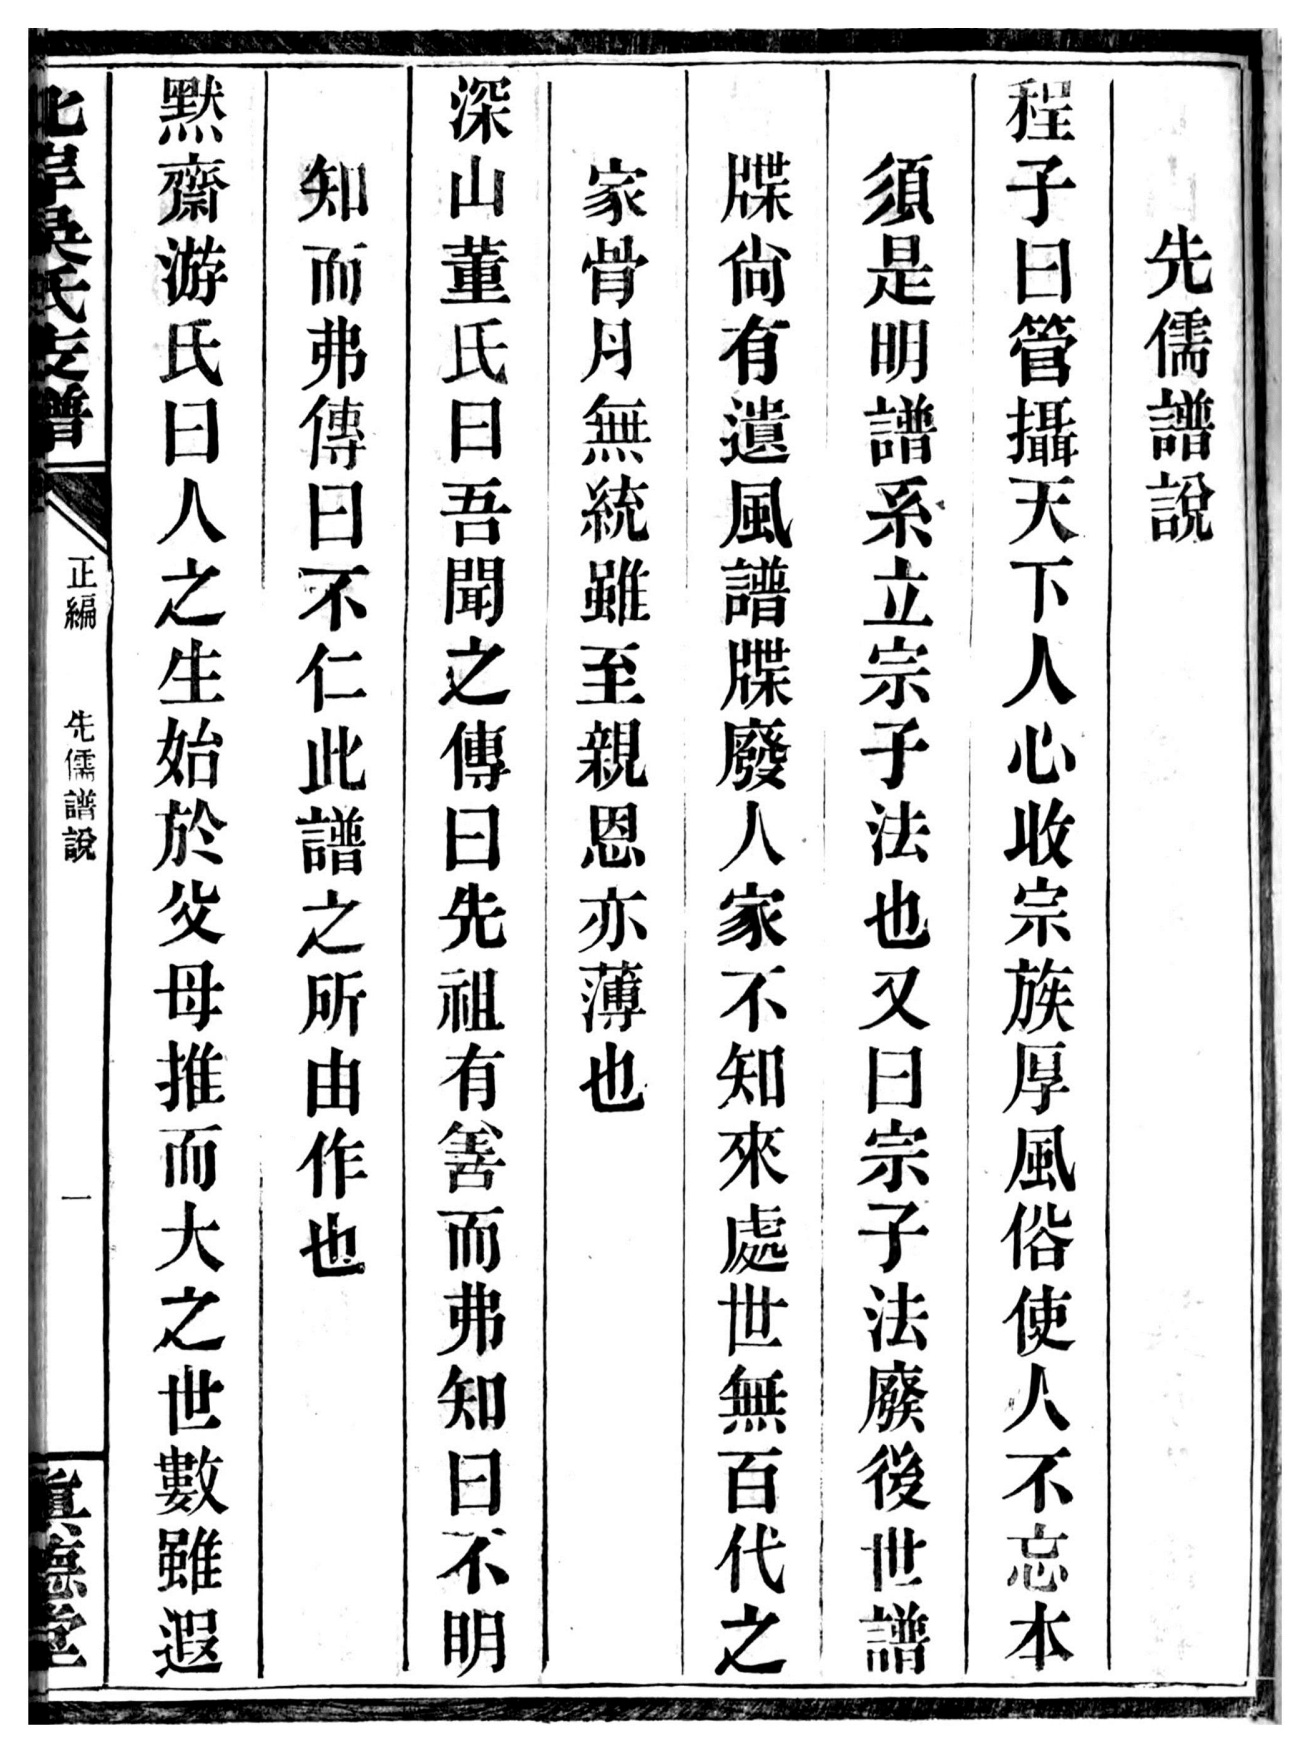 先儒譜說
程子曰管攝天下人心收宗族厚風俗使人不忘本
須是明譜系立宗子法也又曰宗子法廢後世譜
牒尙有遺風譜牒廢人家不知來處世無百代之
家骨月無統雖至親恩亦薄也
深山董氏曰吾聞之傳曰先祖有善而弗知曰不明
知而弗傳曰不仁此譜之所由作也
默齋游氏曰人之生始於父母推而大之世數雖遐
北岸吳氏支譜
正編 先儒譜說
一
眞德堂